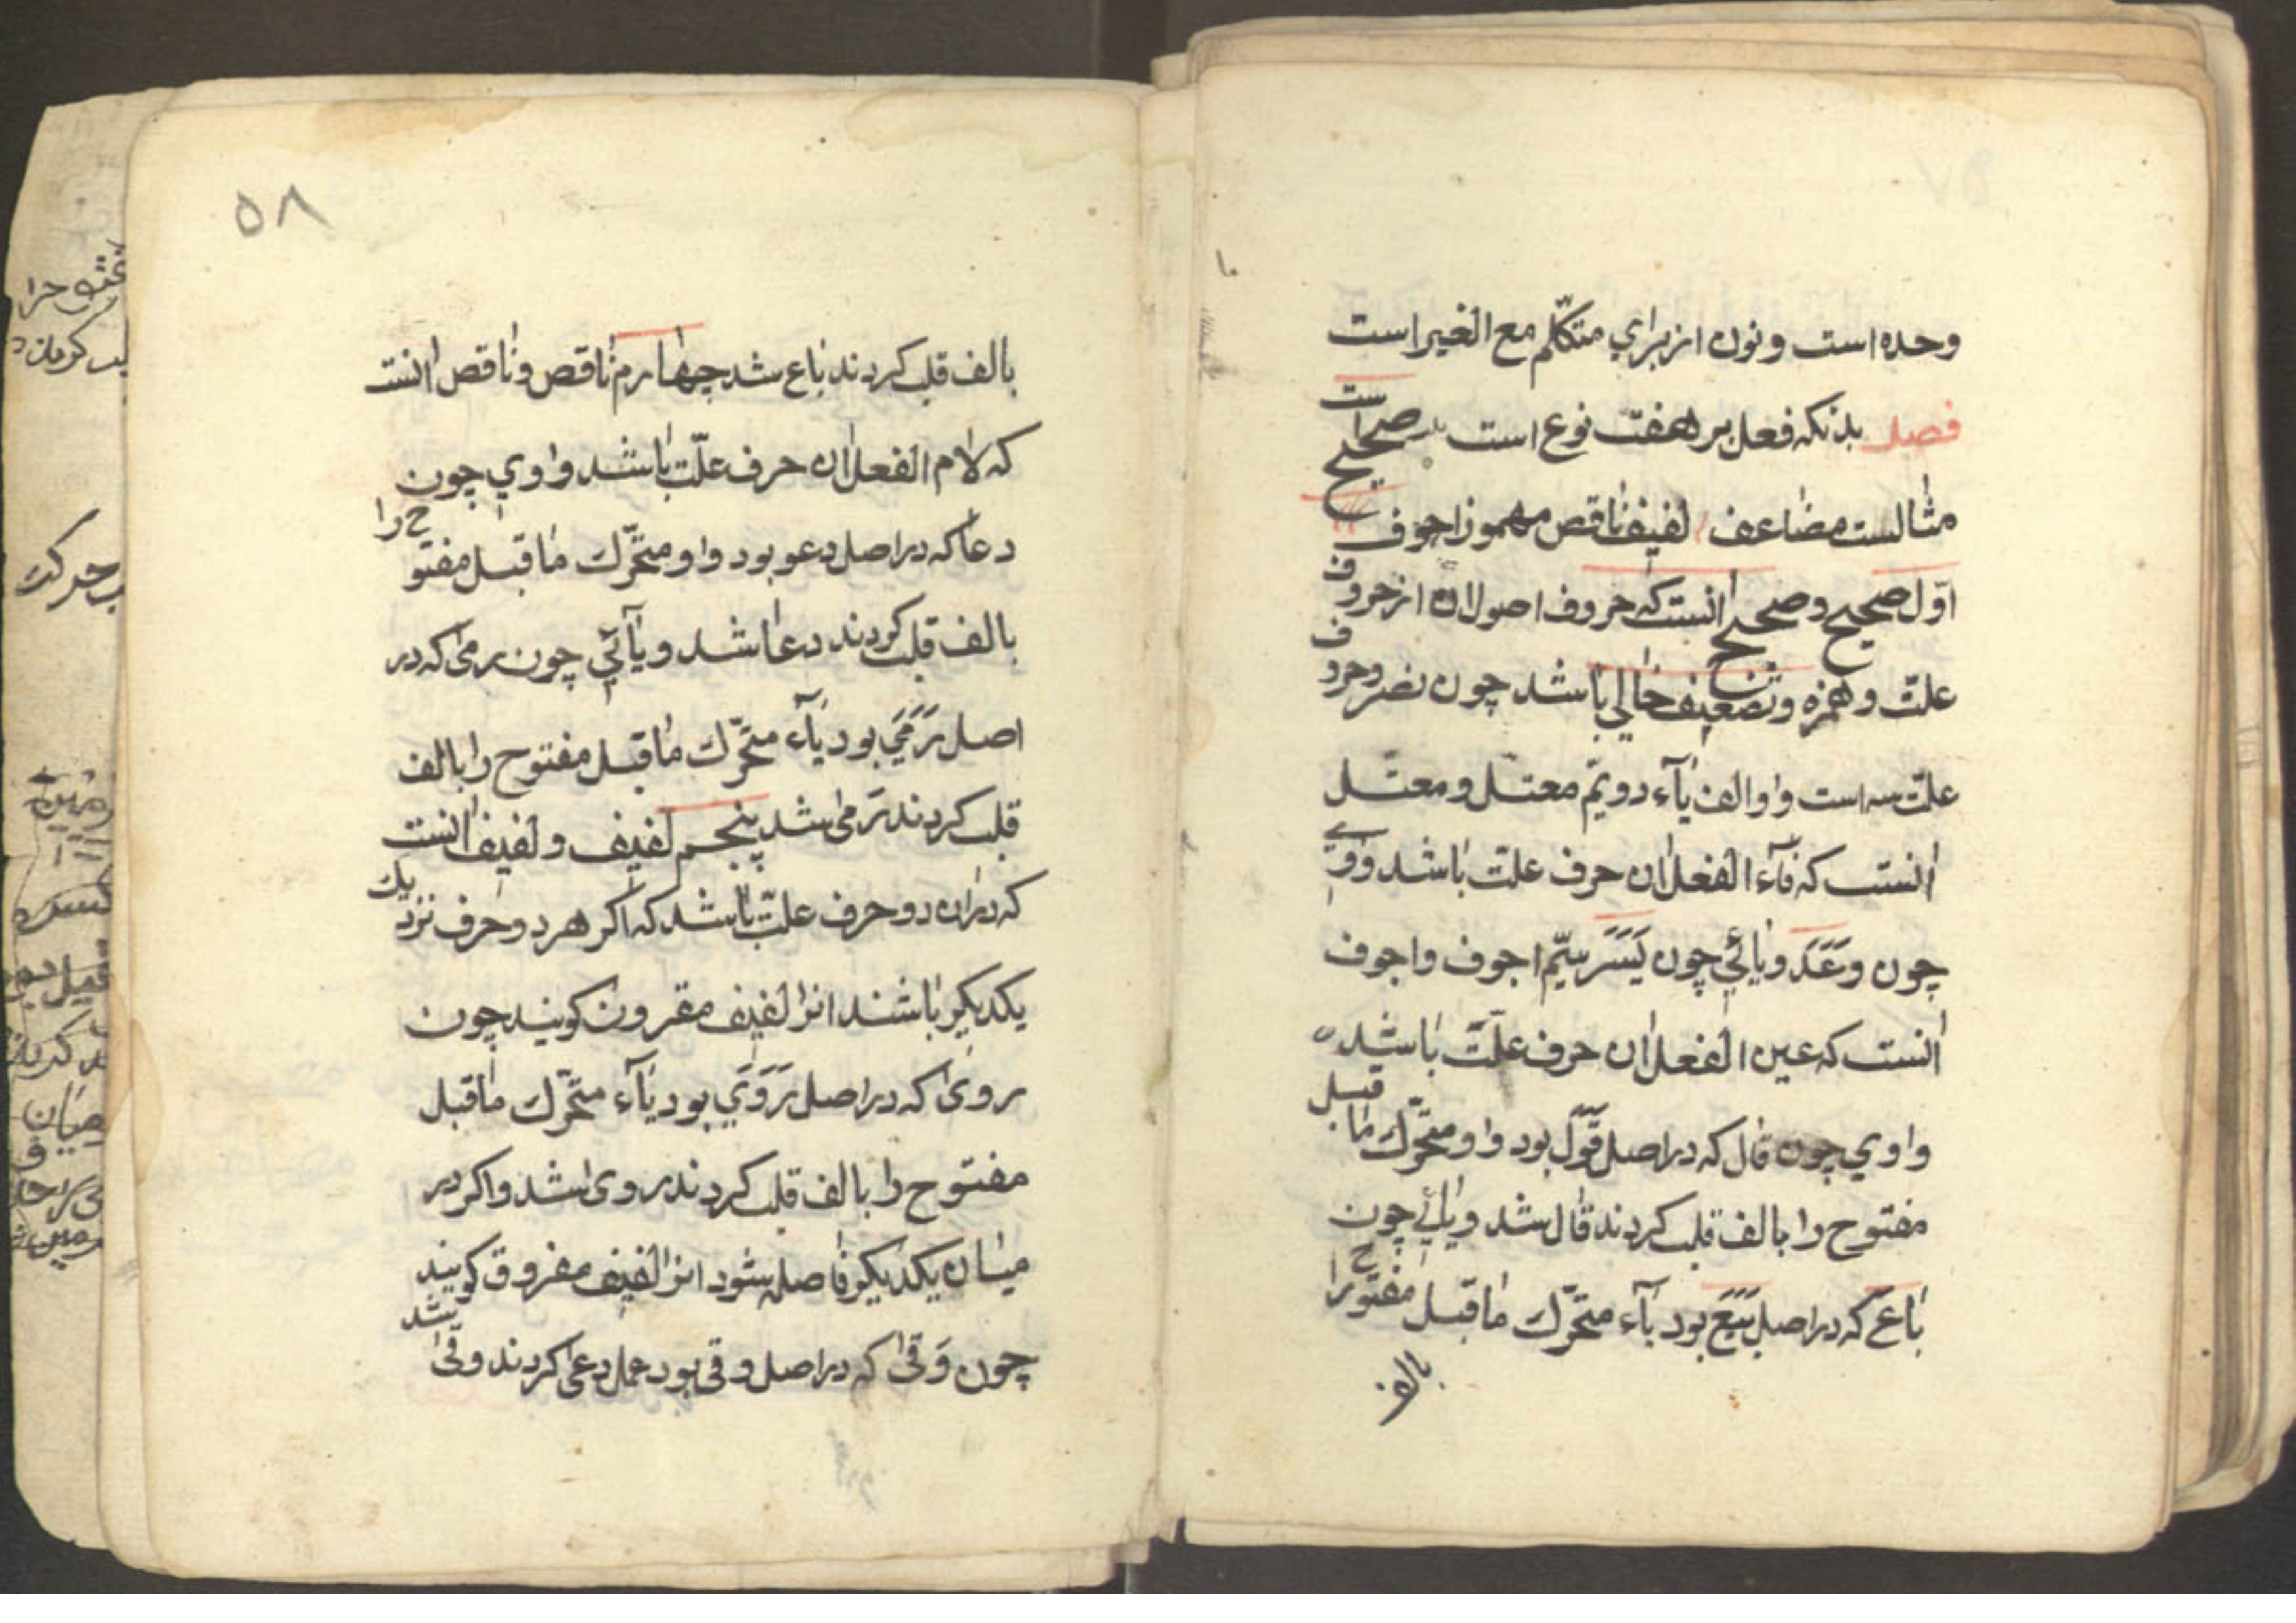 وحده است و نون از برای متکلّم مع الغیر است
فصل بدنکه فعل بر هفت نوع است صحیح است
مثالست مضاعف لفیف ناقص مهموز اجوف
اوّل صحیح و صحیح انست که حروف اصول ان از حروف
علّت و همزه و تضعیف خالی باشد چون نصر و حروف
علّت سه است واو الف یآء دویّم معتل و معتل
انست که فآء الفعل ان حرف علت باشد واوی
چون وَعَدَ و یائی چون یَسَرَ سیّم اجوف و اجوف
انست که عین الفعل ان حرف علّت باشد
واوی چون قال که در اصل قَوَلَ بود واو متحرّک ماقبل
مفتوح را بالف قلب کردند قال شد و یائی چون
باع که در اصل بَیَعَ بود یآء متحرّک ماقبل مفتوح را
بالف
۵۸
بالف قلب کردند باع شد چهارم ناقص و ناقص انست
که لام الفعل ان حرف علّت باشد واوی چون
دعا که در اصل دعو بود واو متحرّک ماقبل مفتوح را
بالف قلب کردند دعا شد و یآئی چون رمی که در
اصل رَمَیَ بود یآء متحرّک ماقبل مفتوح را بالف
قلب کردند رَمی شد پنجم لفیف و لفیف انست
که در ان دو حرف علّت باشد که اکر هر دو حرف نزدیک
یکدیکر باشند انرا لفیف مقرون کویند چون
روی که در اصل رَوَیَ بود یآء متحرّک ماقبل
مفتوح را بالف قلب کردند روی شد و اکر در
میان یکدیکر فاصله شود انرا لفیف مفروق کویند
چون وَقی که در اصل وقی بود عمل دعی کردند وقی شد